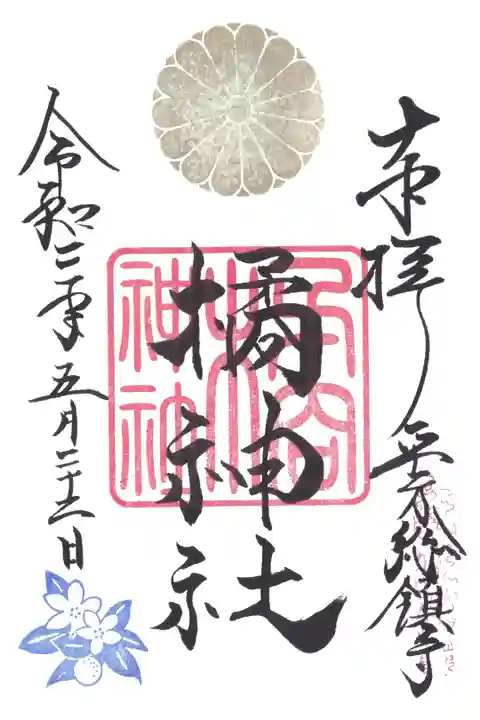 奉拝 平方総鎮守
橘神社
令和二年五月二十三日
神社